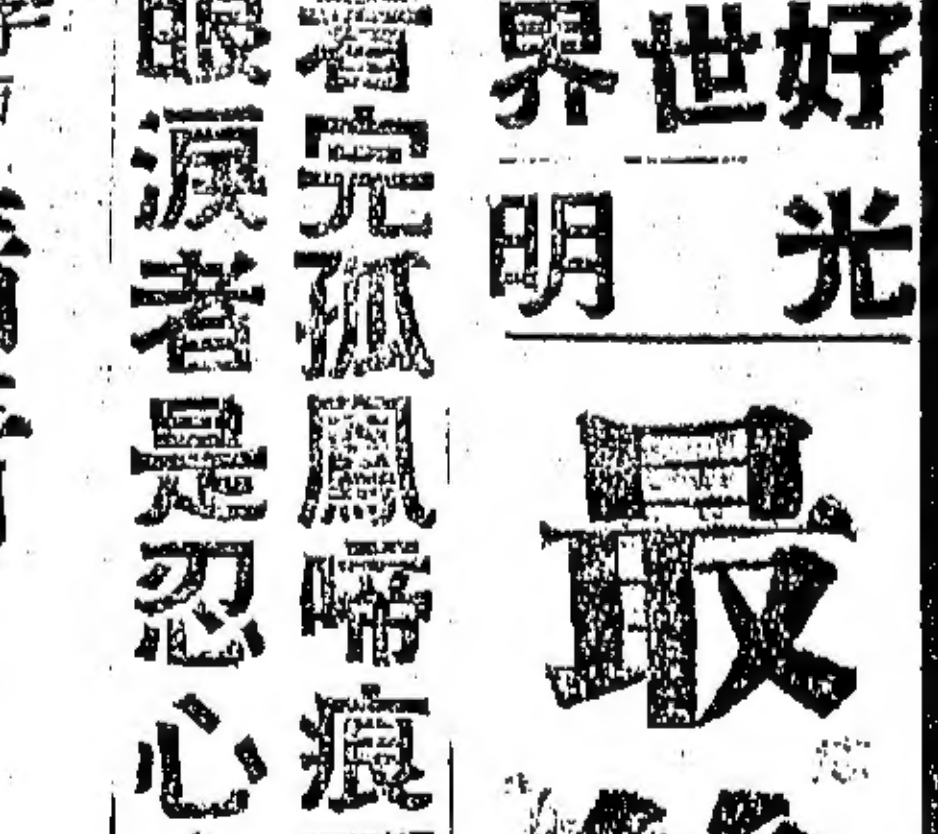 好世界
光明
最
看完孤鳳啼痕
眼淚者是忍心